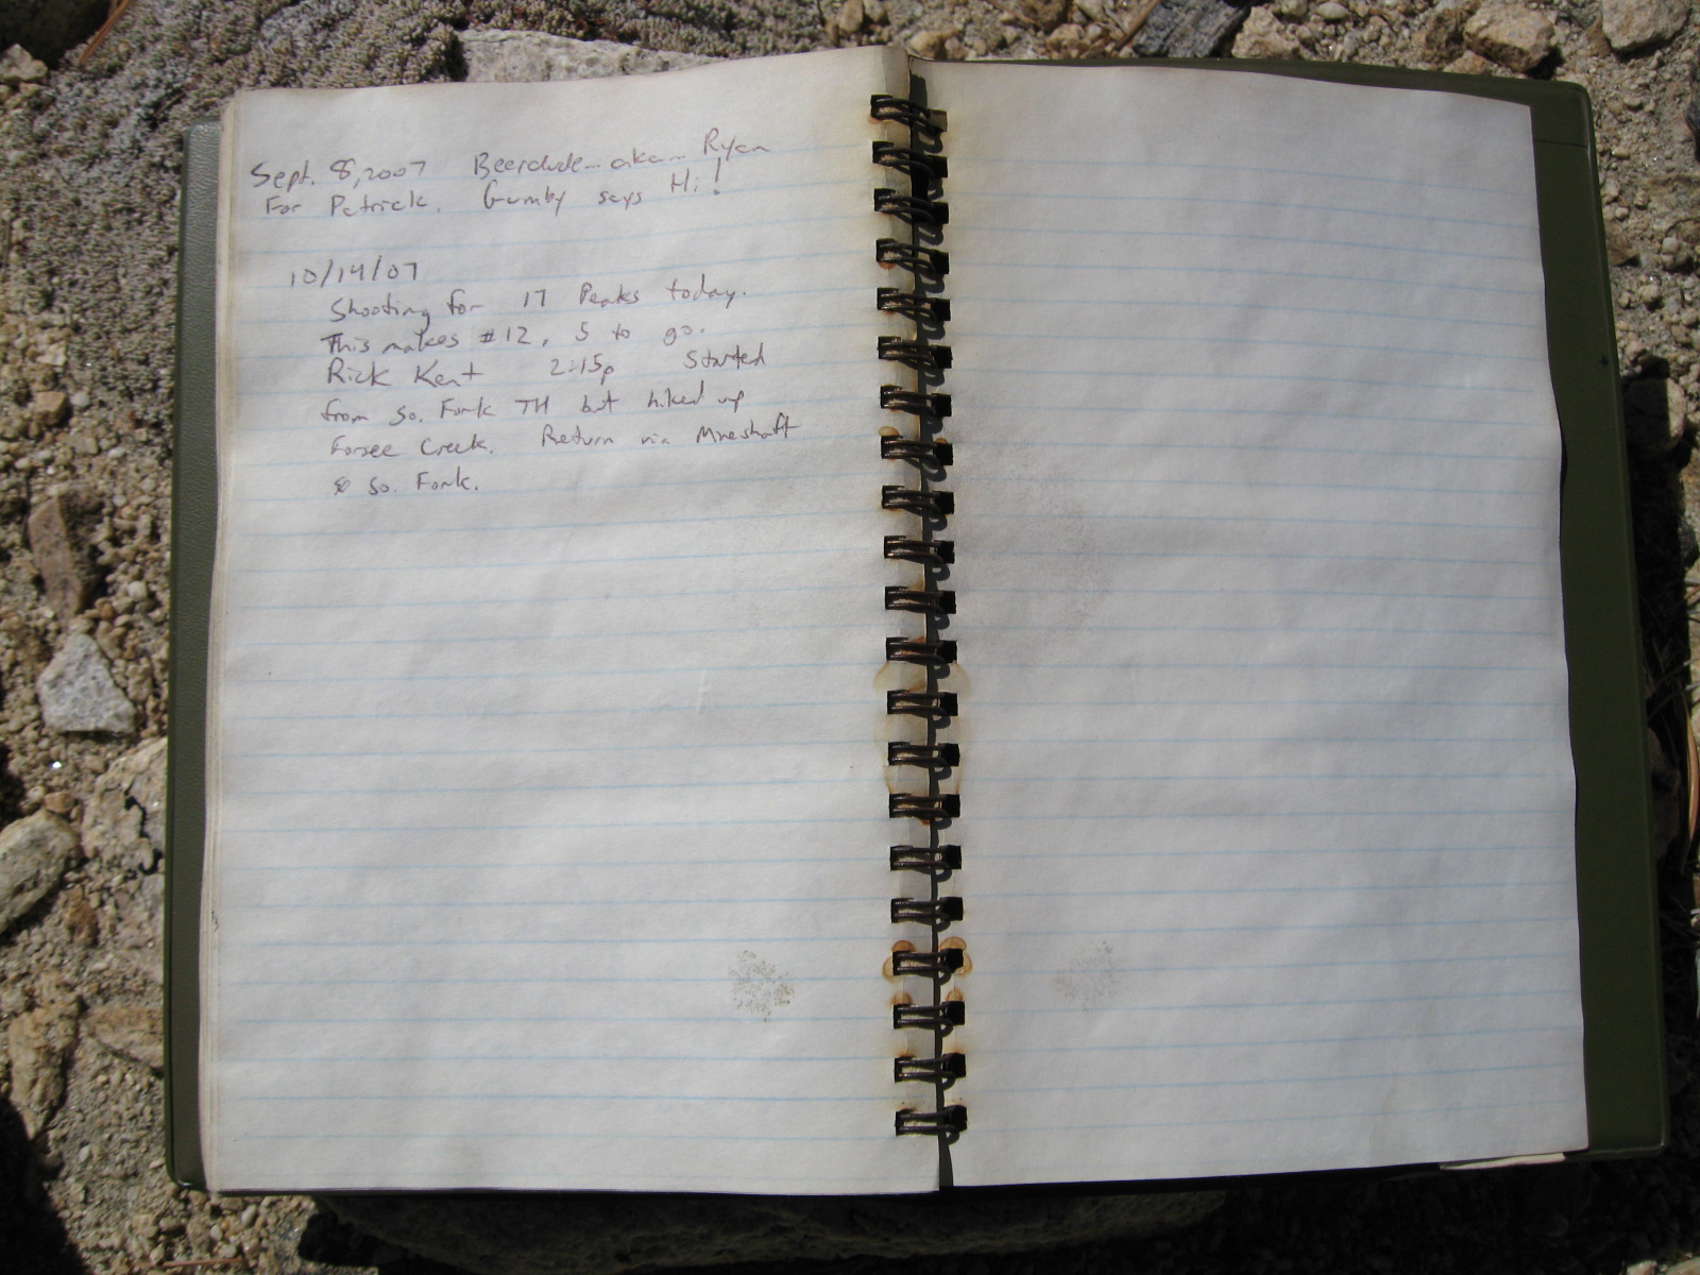 Sept. 8, 2007 Beerdude... aka... Ryan
For Patrick. Gumby says Hi!
10/14/07
Shooting for 17 Peaks today.
This makes #12, 5 to go.
Rick Kent 2:15p Started
from So. Fork TH but hiked up
Forsee Creek. Return via Mineshaft
& So. Fork.